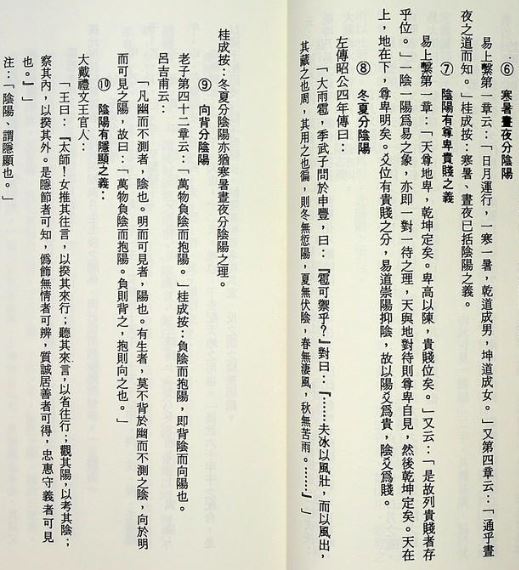 ⑥ 寒暑晝夜分陰陽
易上繫第一章云：「日月運行，一寒一暑，乾道成男，坤道成女。」又第四章云：「通乎晝
夜之道而知。」桂成按：寒暑、晝夜已括陰陽之義。
⑦ 陰陽有尊卑貴賤之義
易上繫第一章：「天尊地卑，乾坤定矣。卑高以陳，貴賤位矣。」又云：「是故列貴賤者存
乎位。」一陰一陽爲易之象，亦即一對一待之理，天與地對待則尊卑自見，然後乾坤定矣。天在
上，地在下，尊卑明矣。爻位有貴賤之分，易道崇陽抑陰，故以陽爻爲貴，陰爻爲賤。
⑧ 冬夏分陰陽
左傳昭公四年傳曰：
「大雨雹，季武子問於申豐，曰：『雹可禦乎？』對曰：『……夫冰以風壯，而以風出，
其藏之也周，其用之也徧，則冬無愆陽，夏無伏陰，春無淒風，秋無苦雨。……』」
桂成按：冬夏分陰陽亦猶寒暑晝夜分陰陽之理。
⑨ 向背分陰陽
老子第四十二章云：「萬物負陰而抱陽。」桂成按：負陰而抱陽，即背陰而向陽也。
呂吉甫云：
「凡幽而不測者，陰也。明而可見者，陽也。有生者，莫不背於幽而不測之陰，向於明
而可見之陽，故曰：「萬物負陰而抱陽。負則背之，抱則向之也。」
⑩ 陰陽有隱顯之義：
大戴禮文王官人：
「王曰：『太師！女推其往言，以揆其來行；聽其來言，以省往行；觀其陽，以考其陰；
察其內，以揆其外。是隱節者可知，僞飾無情者可辨，質誠居善者可得，忠惠守義者可見
也。』」
注：「陰陽、謂隱顯也。」